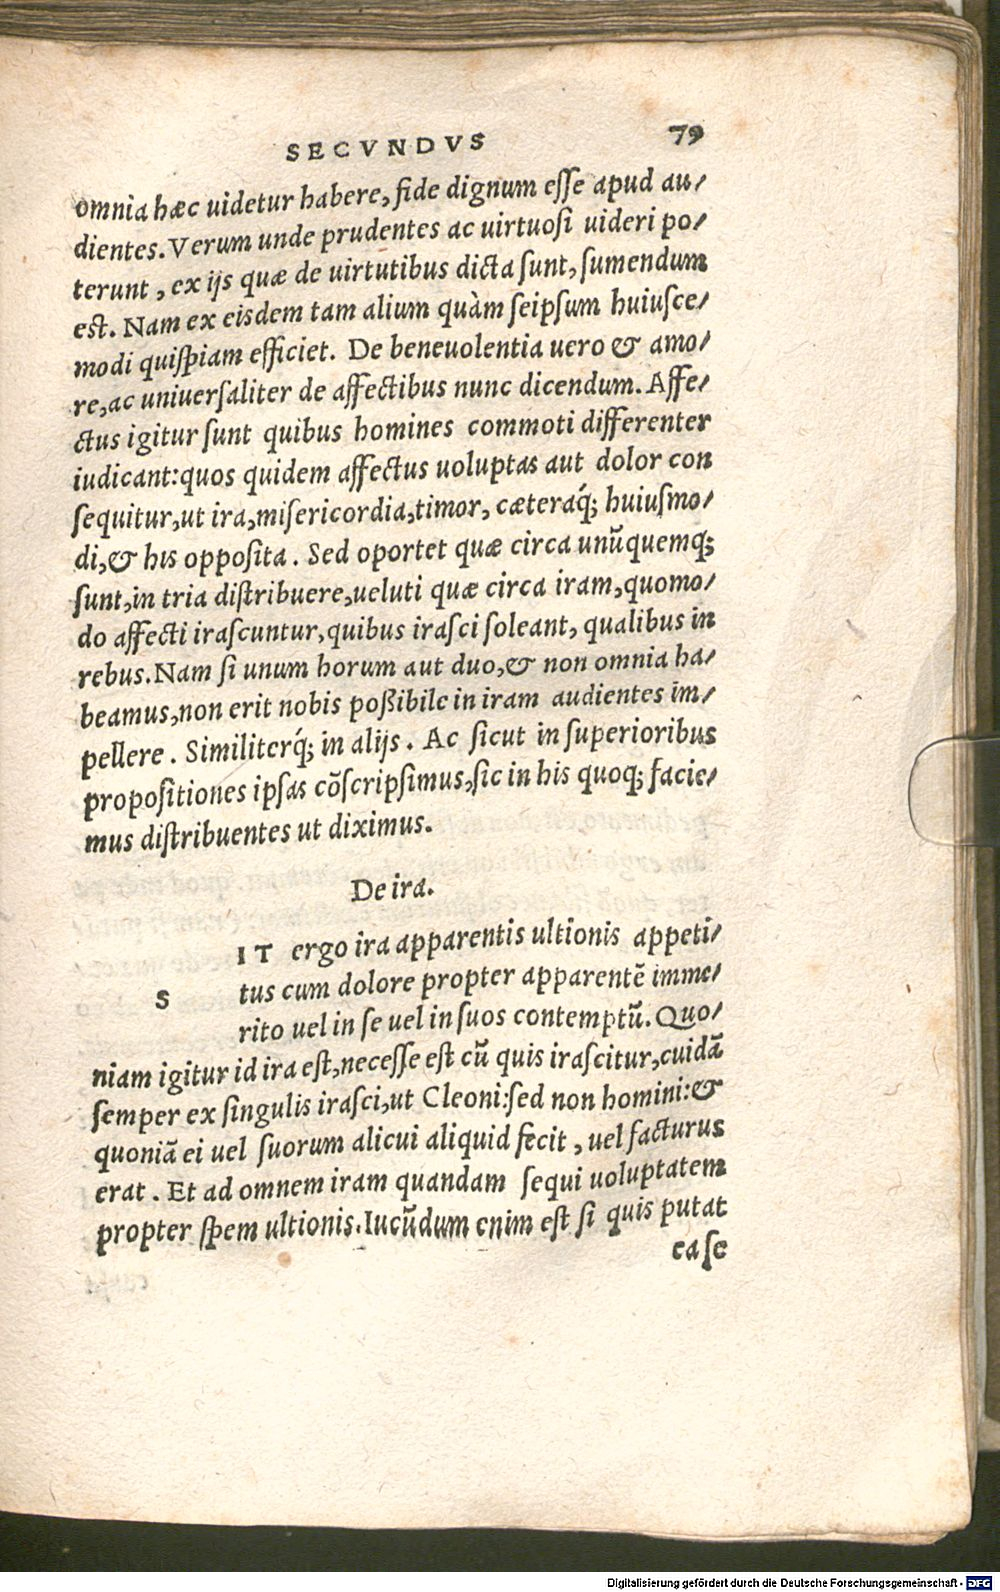 SECVNDVS 79
omnia hæc uidetur habere, fide dignum eſſe apud au/
dientes. Verum unde prudentes ac uirtuoſi uideri po/
terunt, ex ijs quæ de uirtutibus dicta ſunt, ſumendum
eſt. Nam ex eiſdem tam alium quàm ſeipſum huiuſce/
modi quiſpiam efficiet. De beneuolentia uero & amo/
re, ac uniuerſaliter de affectibus nunc dicendum. Affe/
ctus igitur ſunt quibus homines commoti differenter
iudicant: quos quidem affectus uoluptas aut dolor con
ſequitur, ut ira, miſericordia, timor, cæteraq́; huiuſmo/
di, & his oppoſita. Sed oportet quæ circa unũquemq;
ſunt, in tria diſtribuere, ueluti quæ circa iram, quomo/
do affecti iraſcuntur, quibus iraſci ſoleant, qualibus in
rebus. Nam ſi unum horum aut duo, & non omnia ha/
beamus, non erit nobis poßibile in iram audientes im/
pellere. Similiterq́; in alijs. Ac ſicut in ſuperioribus
propoſitiones ipſas cõſcripſimus, ſic in his quoq; facie/
mus diſtribuentes ut diximus.
De ira.
SIT ergo ira apparentis ultionis appeti/
tus cum dolore propter apparentẽ imme/
rito uel in ſe uel in ſuos contemptũ. Quo/
niam igitur id ira eſt, neceſſe eſt cũ quis iraſcitur, cuidã
ſemper ex ſingulis iraſci, ut Cleoni: ſed non homini: &
quoniã ei uel ſuorum alicui aliquid fecit, uel facturus
erat. Et ad omnem iram quandam ſequi uoluptatem
propter ſpem ultionis. Iucũdum enim eſt ſi quis putat
ea ſe
Digitalisierung gefördert durch die Deutsche Forschungsgemeinschaft - DFG